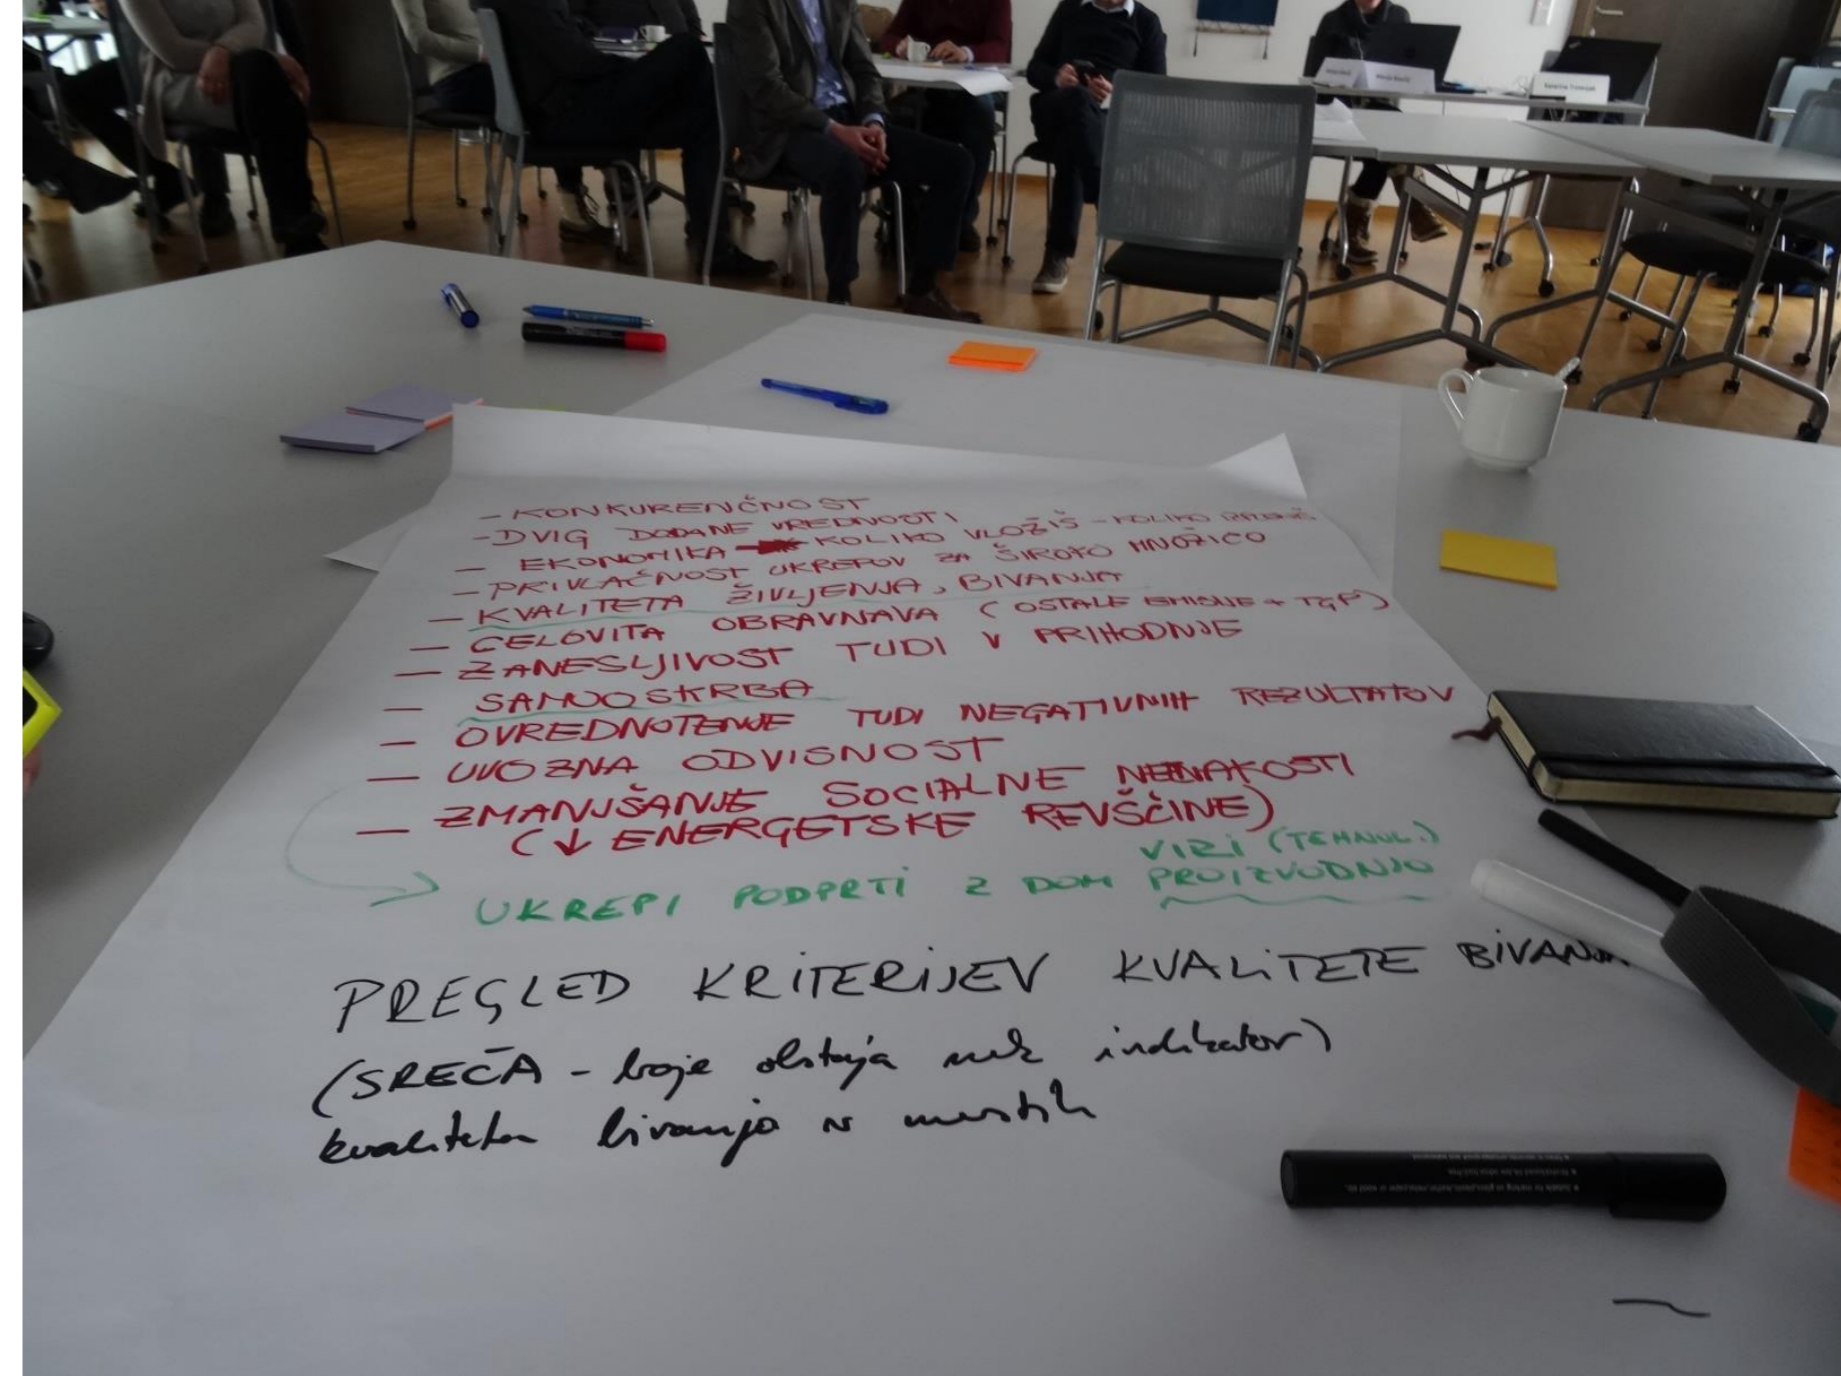 - KONKURENČNOST
- DVIG DODANE VREDNOSTI
- EKONOMIKA → KOLIKO VLOŽIŠ - KOLIKO
- PRIVLAČNOST UKREPOV ZA ŠIROKO MNOŽICO
- KVALITETA ŽIVLJENJA, BIVANJA
- CELOVITA OBRAVNAVA (OSTALE EMISIJE + TGP)
- ZANESLJIVOST TUDI V PRIHODNJE
- SAMOOSKRBA
- OVREDNOTENJE TUDI NEGATIVNIH REZULTATOV
- UVOZNA ODVISNOST
- ZMANJŠANJE SOCIALNE NEENAKOSTI
(↓ ENERGETSKE REVŠČINE)
VIRI (TEHNOL.)
UKREPI PODPRTI Z DOM PROIZVODNJO
PREGLED KRITERIJEV KVALITETE BIVANJA
(SREČA - boje obstaja nek indikator)
kvaliteta bivanja v mestih